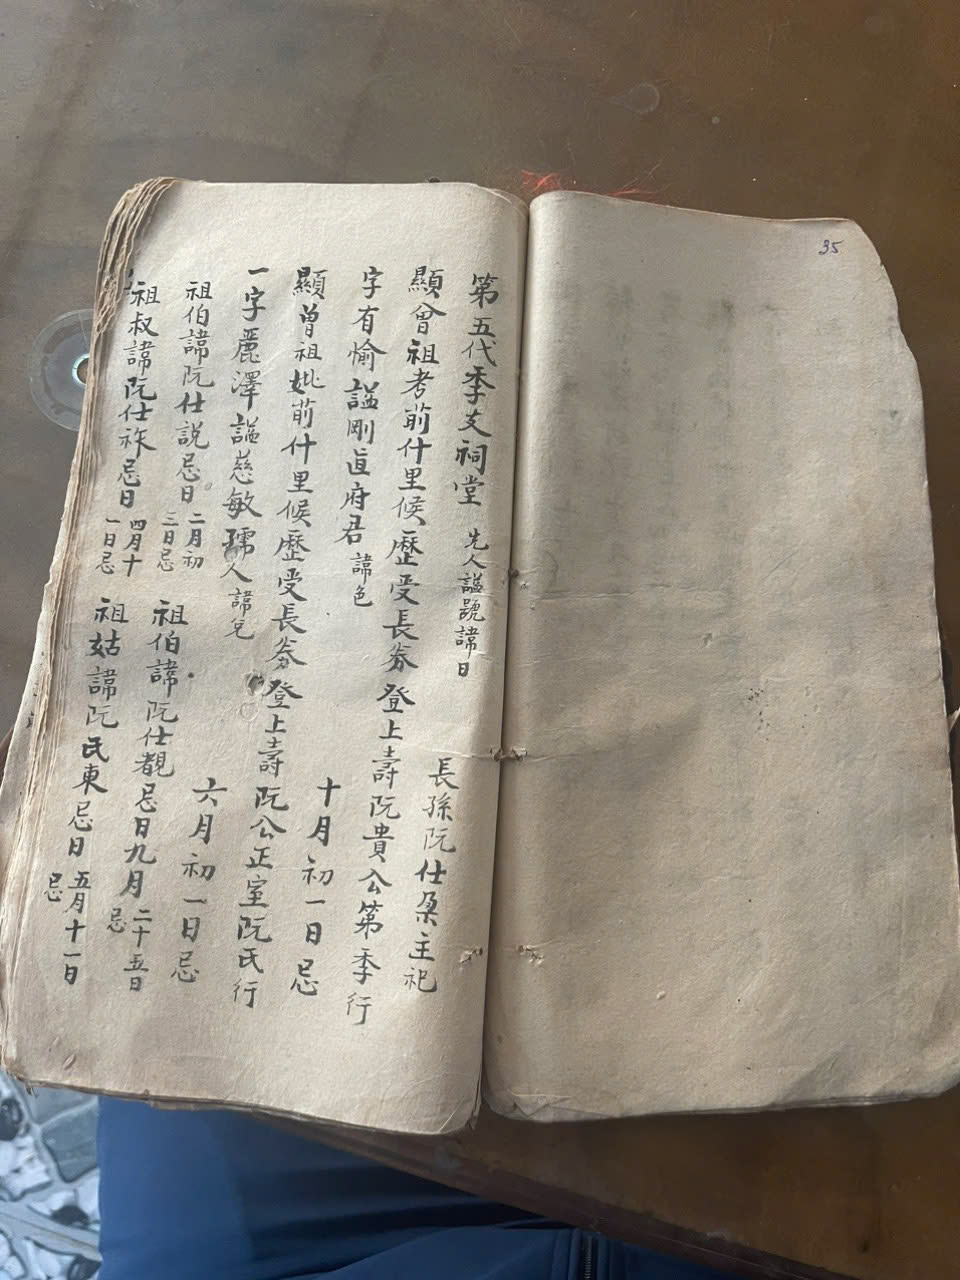 35
第五代季支祠堂 先人謚號諱日 長孫阮仕朶主祀
顯曾祖考前什里候歷受長券登上壽阮貴公第季行
字有愉謚剛直府君 諱色 十月初一日忌
顯曾祖妣前什里候歷受長券登上壽阮公正室阮氏行
一字麗澤謚慈敏孺人 諱兌 六月初一日忌
祖伯諱阮仕説忌日 二月初三日忌 祖伯諱阮仕覩忌日九月 二十五日忌
祖叔諱阮仕祚忌日 四月十一日忌 祖姑諱阮氏東忌日 五月十一日忌